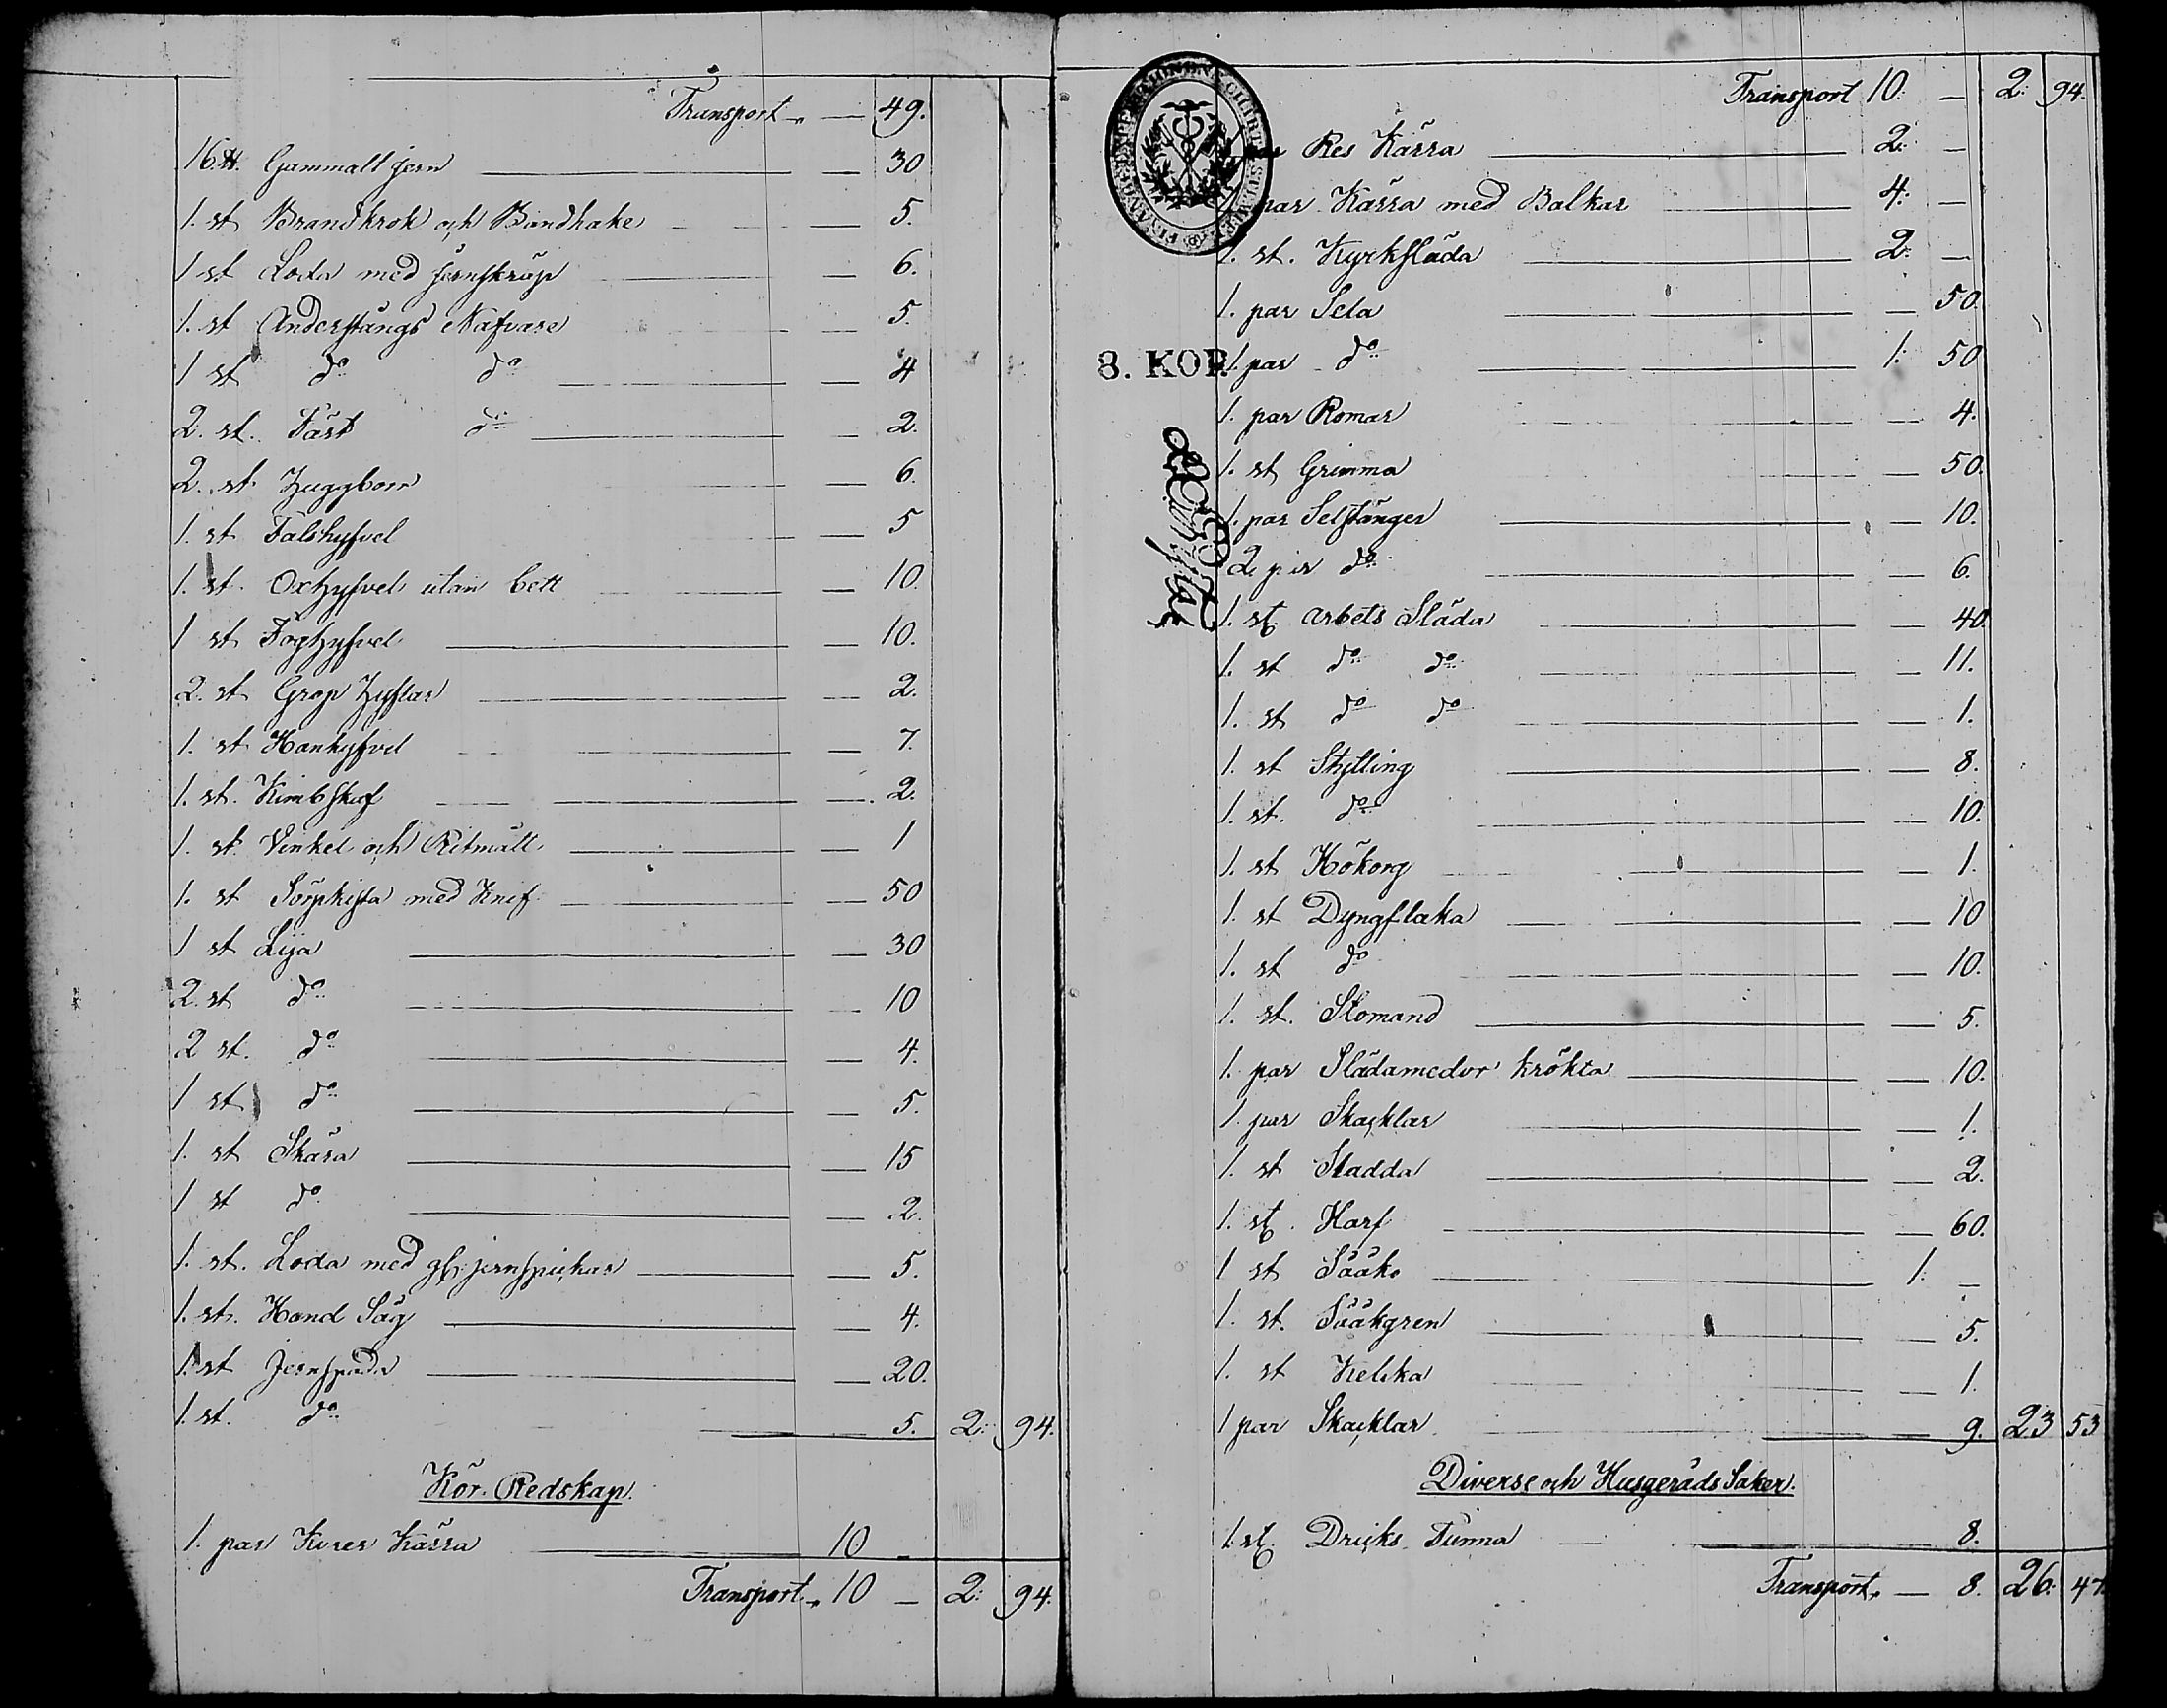 Transport — 49.
16 ℔. Gammalt jern — 30
1. st Brandkrok och Bandhake — 5.
1 st Loda med jernskrap — 6.
1. st Anderstångs Nafvare — 5.
1 st do do — 4
2. st. Fäst do — 2.
2. st. Huggborr — 6.
1. st Falshyfvel — 5
1. st. Oxhyfvel utan bett — 10.
1 st Foghyfvel — 10.
2. st Grop Hyflar — 2.
1. st Hankyfvel — 7.
1. st. Kimbskaf — 2.
1. st. Vinkel och Ritmått — 1
1. st Sörpkista med Knif — 50
1 st Lija — 30
2. st do — 10
2 st. do — 4.
1 st do — 5.
1. st Skära — 15
1 st do — 2.
1. st. Loda med gl: jernspickar — 5.
1. st. Hand Såg — 4.
1. st Jernspada — 20.
1. st. do — 5. 2: 94.
Kör-Redskap.
1. par Kärra 10 —
Transport 10 — 2: 94.
Transport 10: — 2: 94.
par Res Kärra — 2: —
1 par Kärra med Balkar — 4: —
1. st. Kyrksläda — 2: —
1. par Sela — 50.
8. KOP.
1. par do — 1: 50
1. par Romar — 4.
1. st Grimma — 50.
1. par Selstänger — 10.
2. par do — 6.
1. st. arbets Släda — 40
1. st do do — 11.
1. st do do — 1.
1. st Stytting — 8.
1. st. do — 10.
1. st Hökorg — 1.
1. st Dyngflaka — 10
1. st do — 10.
1. st. Stomand — 5.
1. par Slädamedor krökta — 10.
1. par Skacklar — 1.
1. st Sladda — 2.
1. st. Harf — 60.
1 st Sååko — 1: —
1. st. Sååkgren — 5.
1. st Kelka — 1.
1 par Skacklar — 9. 23 53
Diverse och Husgeråds Saker.
1. st. Dricks Tunna — 8.
Transport — 8. 26: 47.